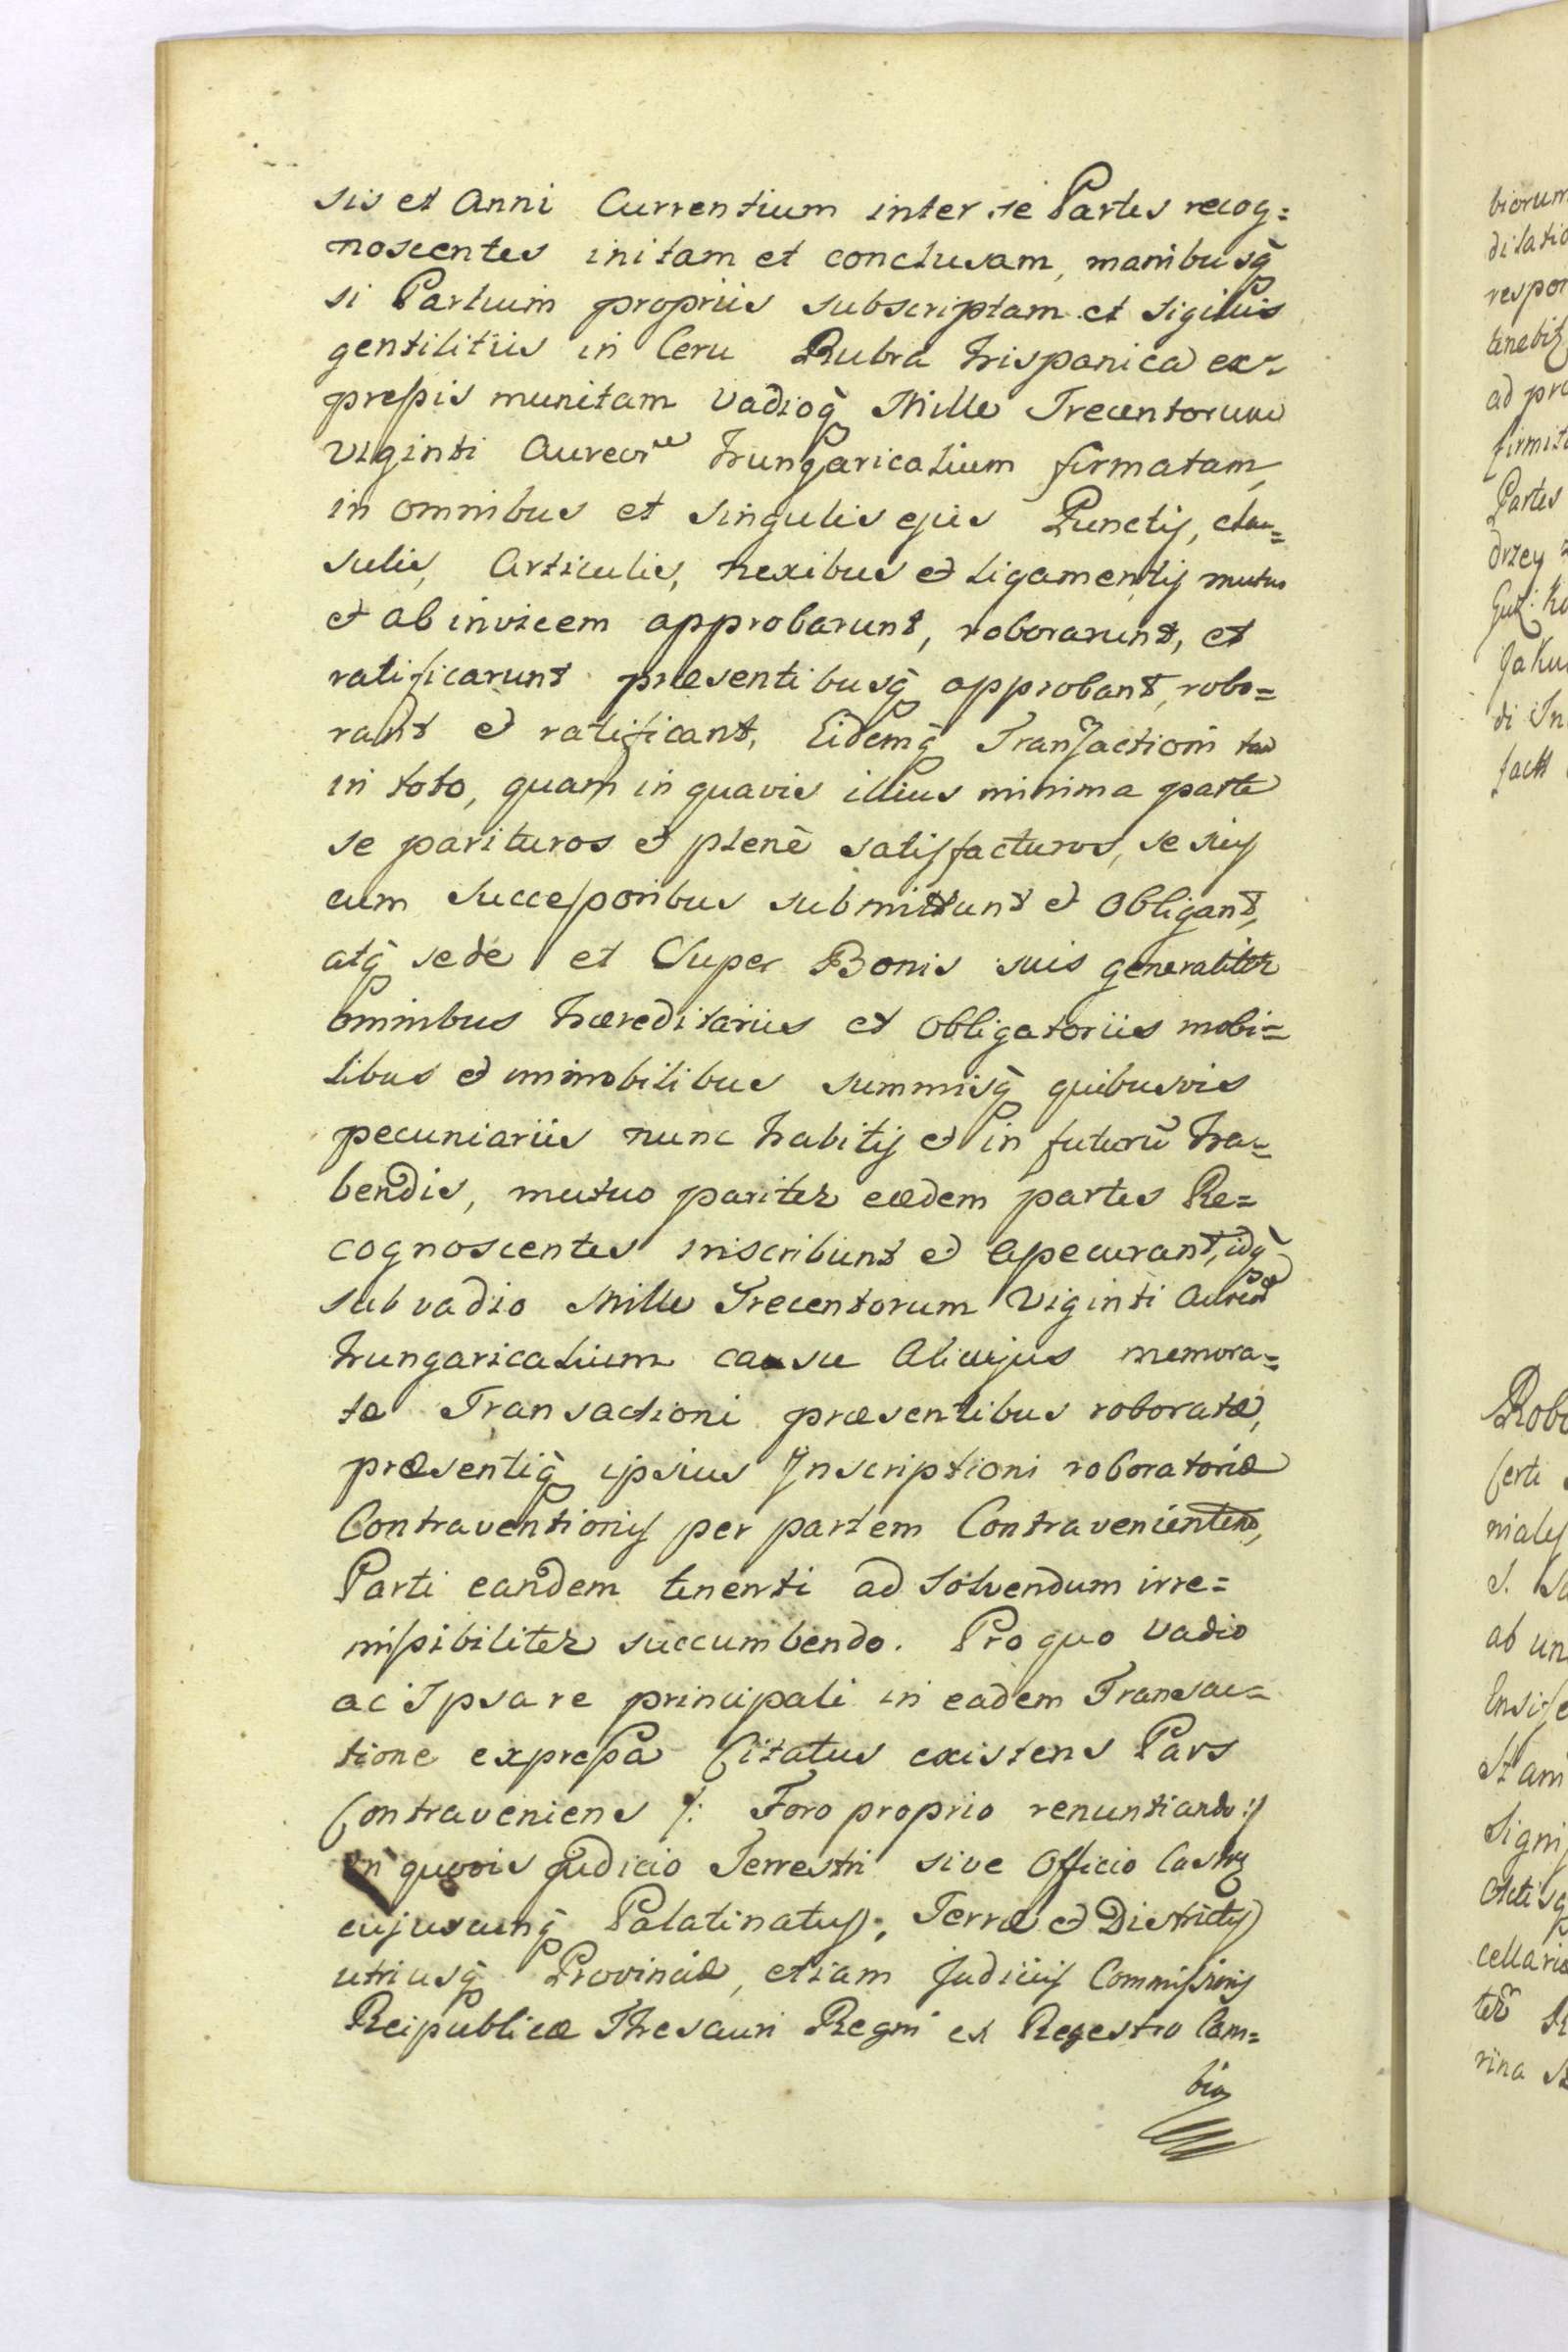 sis et Anni Currentium inter se Partes recog=
noscentes initam et conclusam, manibusq̃
si Partium propriis subscriptam et sigillis
gentilitiis in Ceru Rubra hispanica ex=
pressis munitam Vadioq̃ Mille Trecentorum
Viginti Aureor Hungaricalium firmatam,
in omnibus et singulis ejus Punctis, clau=
sulis, Articulis, nexibus et Ligamentis mutuo
et ab invicem approbarunt, roborarunt, et
ratificarunt præsentibusq̃ approbant, robo=
rant et ratificant, Eidemq̃ Transactioni tam
in toto, quam in quavis illius minima parte
se parituros et plenè satisfacturos, se suis
cum Successoribus submittunt et Obligant,
atq̃ se de et Super Bonis suis generaliter
omnibus hæreditariis et Obligatoriis mobi=
libus et immobilibus summisq̃ quibusvis
pecuniariis nunc habitis et in futurũ ha=
bendis, mutuo pariter eædem partes Re=
cognoscentes inscribunt et assecurant, idq̃
sub vadio Mille Trecentorum Viginti Aureor
hungaricalium casu Alicujus memora=
tæ Transactioni præsentibus roboratæ,
præsentiq̃ ipsius Inscriptioni roboratoriæ
Contraventionis per partem Contravenientem,
Parti eandem tenenti ad solvendum irre=
missibiliter succumbendo. Pro quo Vadio
ac Ipsa re principali in eadem Transac=
tione expressa Citatus existens Pars
Contraveniens /: Foro proprio renuntiando :/
in quovis Judicio Terrestri sive Officio Castri
cujuscunq̃ Palatinatus, Terræ et Districtus
utriusq̃ Provinciæ, etiam Judiciis Commissionis
Reipublicæ Thesauri Regni ex Regestro Cam=
bio
biorum
dilatio
respon
tenebit
ad pr
firmit
Partes
drzey
Jaku
di In
fact
Robo
certi
nialis
S.
ab un
Ensife
Stam
Signi
Actisq
cellaria
rina